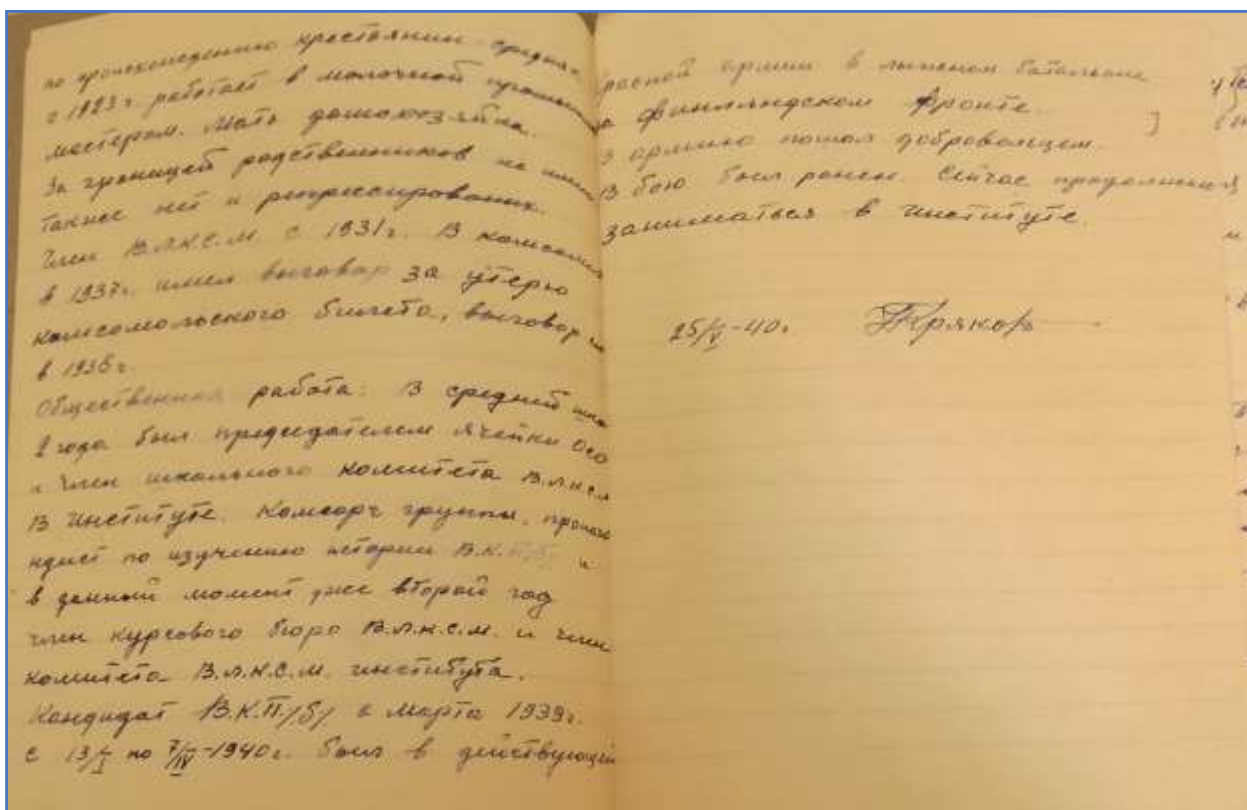 по происхождению крестьянин - средняк
с 1923 г. работает в молочной промышл
мастером. Мать домохозяйка.
За границей родственников не имею
также нет и репрессированых.
Член В.Л.К.С.М. с 1931 г. В комсомол
в 1937 г. имел выговор за утерю
комсомольского билета, выговор
в 1938 г.
Общественная работа: В средней шко
2 года был председателем ячейки Осо
и член школьного комитета В.Л.К.С.М
В институте. Комсорг группы, пропага
ндист по изучению истории В.К.П/б/ и
в данный момент уже второй год
член курсового бюро В.Л.К.С.М. и член
комитета В.Л.К.С.М. института.
Кандидат В.К.П./б/ с марта 1939 г.
с 13/I по 7/IV-1940 г. был в действующей
красной армии в лыжном батальоне
на финляндском фронте.
В армию пошел добровольцем
В бою был ранен. Сейчас продолжаю
заниматься в институте.
25/V-40 г.